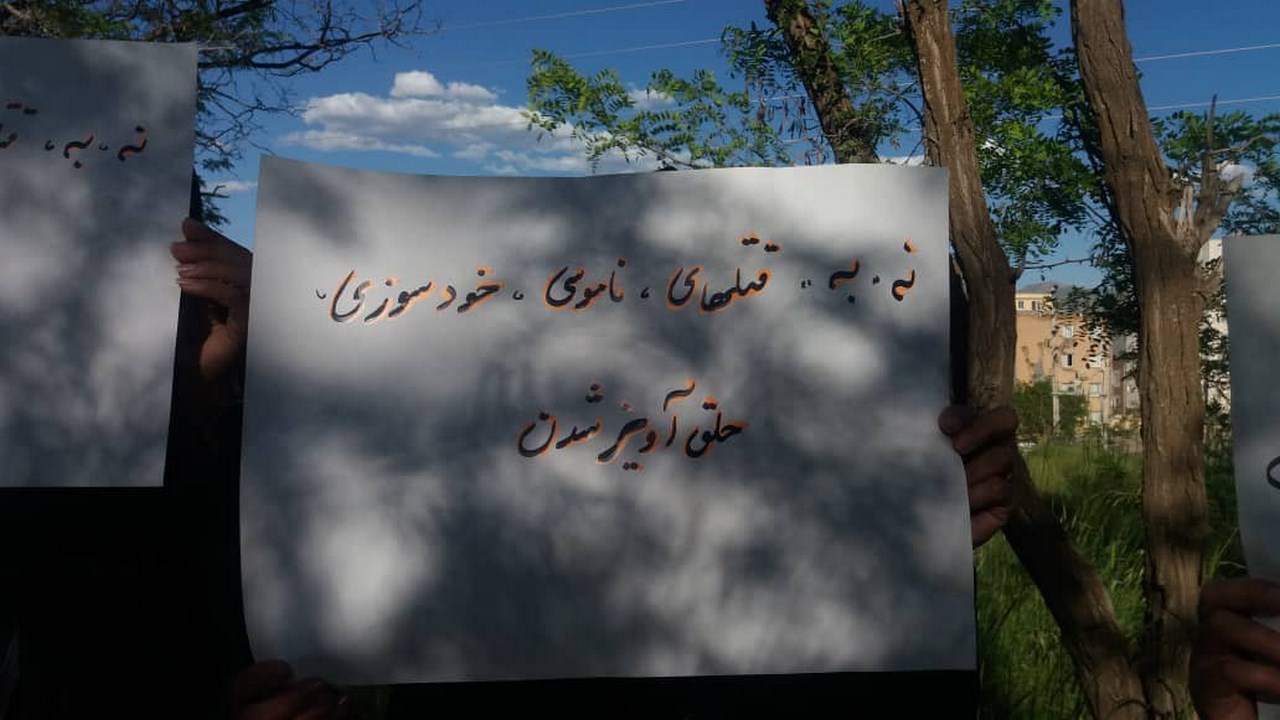 نه به قتلهای ، ناموسی ، خودسوزی ،
حلق آویز شدن
نه به